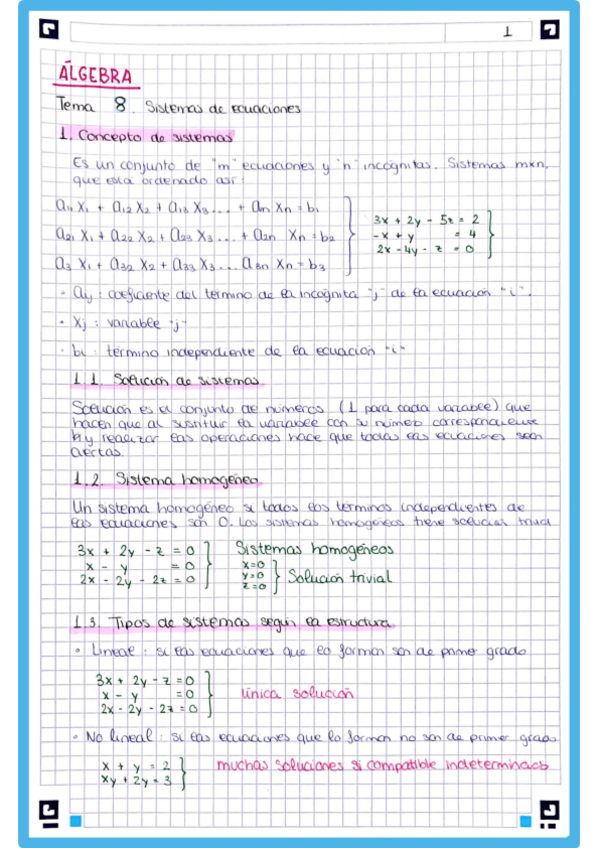 1
ÁLGEBRA
Tema 8. Sistemas de ecuaciones
1. Concepto de sistemas
Es un conjunto de "m" ecuaciones y "n" incógnitas. Sistemas mxn,
que está ordenado así:
a11 X1 + a12 X2 + a13 X3 ... + an Xn = b1
a21 X1 + a22 X2 + a23 X3 ... + a2n Xn = b2
a3 X1 + a32 X2 + a33 X3 ... a3n Xn = b3
3x + 2y - 5z = 2
-x + y = 4
2x - 4y - z = 0
· aij : coeficiente del término de la incógnita "j" de la ecuación "i".
· Xj : variable "j"
· bi : término independiente de la ecuación "i"
1.1. Solución de sistemas.
Solución es el conjunto de números (1 para cada variable) que
hacen que al sustituir la variable con su número correspondiente
y realizar las operaciones hace que todas las ecuaciones sean
ciertas.
1.2. Sistema homogéneo.
Un sistema homogéneo si todos los términos independientes de
las ecuaciones son 0. Los sistemas homogéneos tiene solución trivial
3x + 2y - z = 0
x - y = 0
2x - 2y - 2z = 0
Sistemas homogéneos
x=0
y=0
z=0
Solución trivial
1.3. Tipos de sistemas según la estructura
· Lineal : si las ecuaciones que lo forman son de primer grado
3x + 2y - z = 0
x - y = 0
2x - 2y - 2z = 0
única solución
· No lineal : si las ecuaciones que lo forman no son de primer grado
x + y = 2
xy + 2y = 3
muchas soluciones si compatible indeterminado